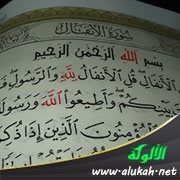 سُورَةُ الأَنْفَالِ
بِسْمِ اللَّهِ الرَّحْمَٰنِ الرَّحِيمِ
عَنِ الْأَنْفَالِ قُلِ الْأَنْفَالُ لِلَّهِ وَالرَّسُولِ
بَيْنِكُمْ وَأَطِيعُوا اللَّهَ وَرَسُولَهُ
الْمُؤْمِنُونَ الَّذِينَ إِذَا ذُكِرَ
الألوكة
www.alukah.net